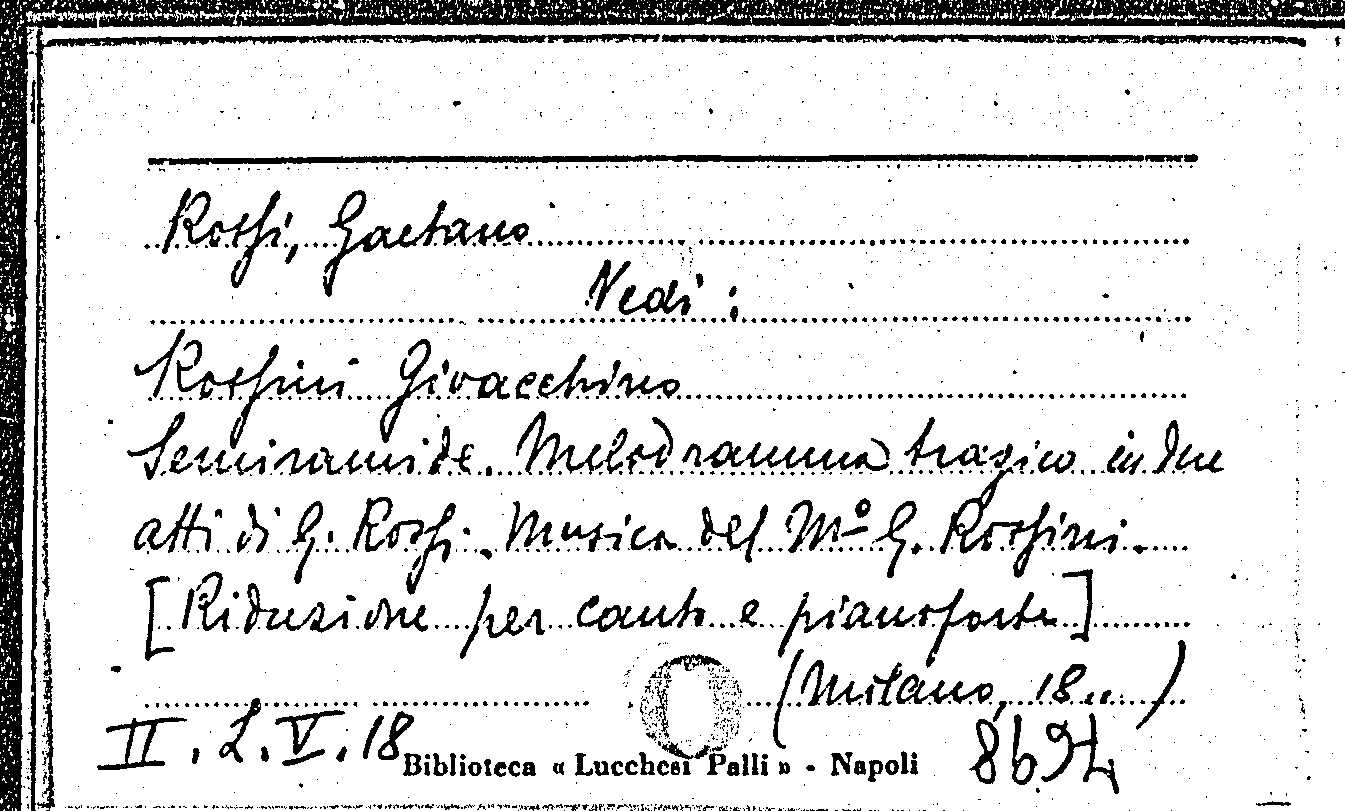 Rossi, Gaetano
Vedi :
Rossini Gioacchino
Semiramide. Melodramma tragico in due
atti di G. Rossi. Musica del Mº G. Rossini.
[Riduzione per canto e pianoforte]
(Milano, 18..)
II. L. V. 18
Biblioteca « Lucchesi Palli » - Napoli
8694